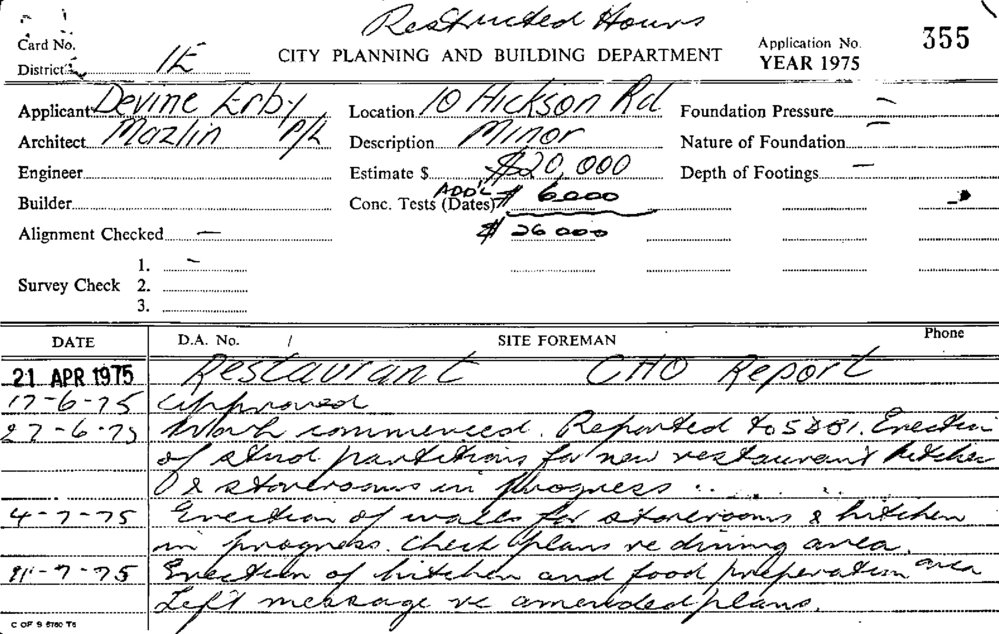 Restricted Hours
Card No.
CITY PLANNING AND BUILDING DEPARTMENT
Application No. 355
YEAR 1975
District 1E
Applicant Devine Erby
Location 10 Hickson Rd.
Foundation Pressure –
Architect Mazlin P/L
Description Minor
Nature of Foundation –
Engineer
Estimate $ $20,000
Depth of Footings –
Builder
Conc. Tests (Dates) ADD'L $ 6000
Alignment Checked –
$ 26000
Survey Check
1. –
2.
3.
DATE D.A. No. / SITE FOREMAN Phone
21 APR 1975 Restaurant CHO Report
17-6-75 Approved
27-6-75 Work commenced. Reported to Erection
of stud partitions for new restaurant kitchen
& storerooms in progress
4-7-75 Erection of walls for storerooms & kitchen
in progress. Check plans re dining area.
11-7-75 Erection of kitchen and food preperation area
Left message re amended plans.
C OF S 5760 T5